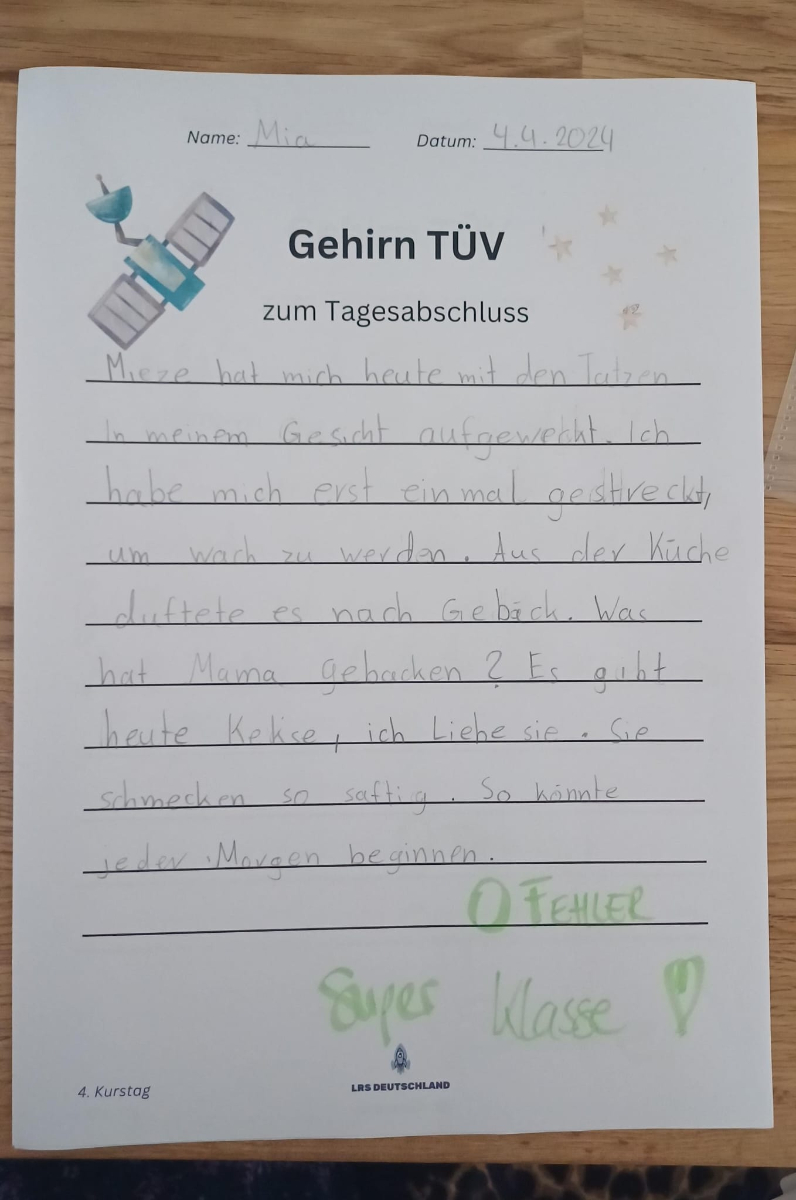 Name: Mia Datum: 4.4.2024
Gehirn TÜV
zum Tagesabschluss
Mieze hat mich heute mit den Tatzen
In meinem Gesicht aufgeweckt. Ich
habe mich erst einmal gestreckt,
um wach zu werden. Aus der Küche
duftete es nach Gebäck. Was
hat Mama gebacken? Es gibt
heute Kekse, ich Liebe sie. Sie
schmecken so saftig. So könnte
jeder Morgen beginnen.
0 FEHLER
Super klasse
4. Kurstag
LRS DEUTSCHLAND